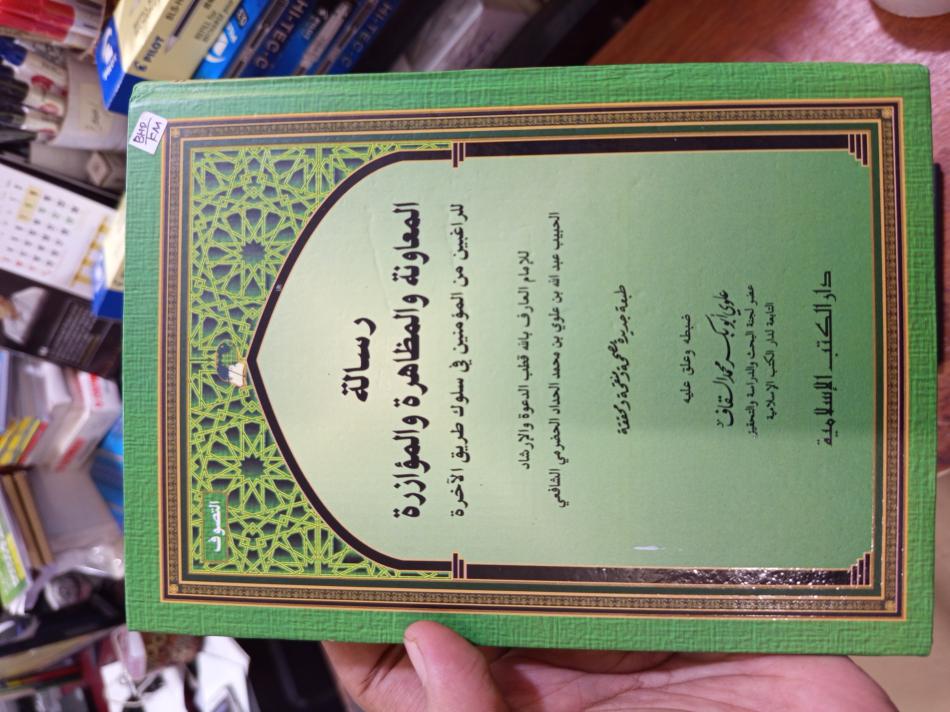 التصوف
رسالة
المعاونة والمظاهرة والمؤازرة
للراغبين من المؤمنين في سلوك طريق الآخرة
للإمام العارف بالله قطب الدعوة والإرشاد
الحبيب عبد الله بن علوي بن محمد الحداد الحضرمي الشافعي
طبعة جديدة مصححة ومنقحة ومحققة
ضبطه وعلق عليه
علوي أبو بكر محمد السقاف
عضو لجنة البحث والدراسة والتحقيق
التابعة لدار الكتب الإسلامية
دار الكتب الإسلامية
PILOT
HI-TEC-C
HI-TEC-C
PILOT